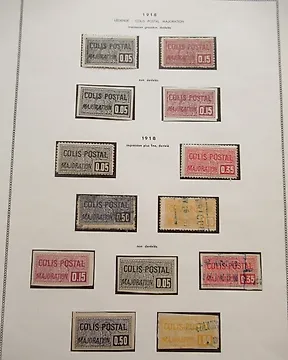 1918
LÉGENDE : COLIS POSTAL MAJORATION
impression grossière, dentelés
COLIS POSTAL
MAJORATION 0.05
COLIS POSTAL
MAJORATION 0.15
non dentelés
COLIS POSTAL
MAJORATION 0.05
COLIS POSTAL
MAJORATION 0.15
1918
impression plus fine, dentelé
COLIS POSTAL
MAJORATION 0.05
COLIS POSTAL
MAJORATION 0.35
COLIS POSTAL
MAJORATION 0.50
non dentelés
COLIS POSTAL
MAJORATION 0.15
COLIS POSTAL
MAJORATION 0.05
COLIS POSTAL
MAJORATION 0.35
COLIS POSTAL
MAJORATION 0.50